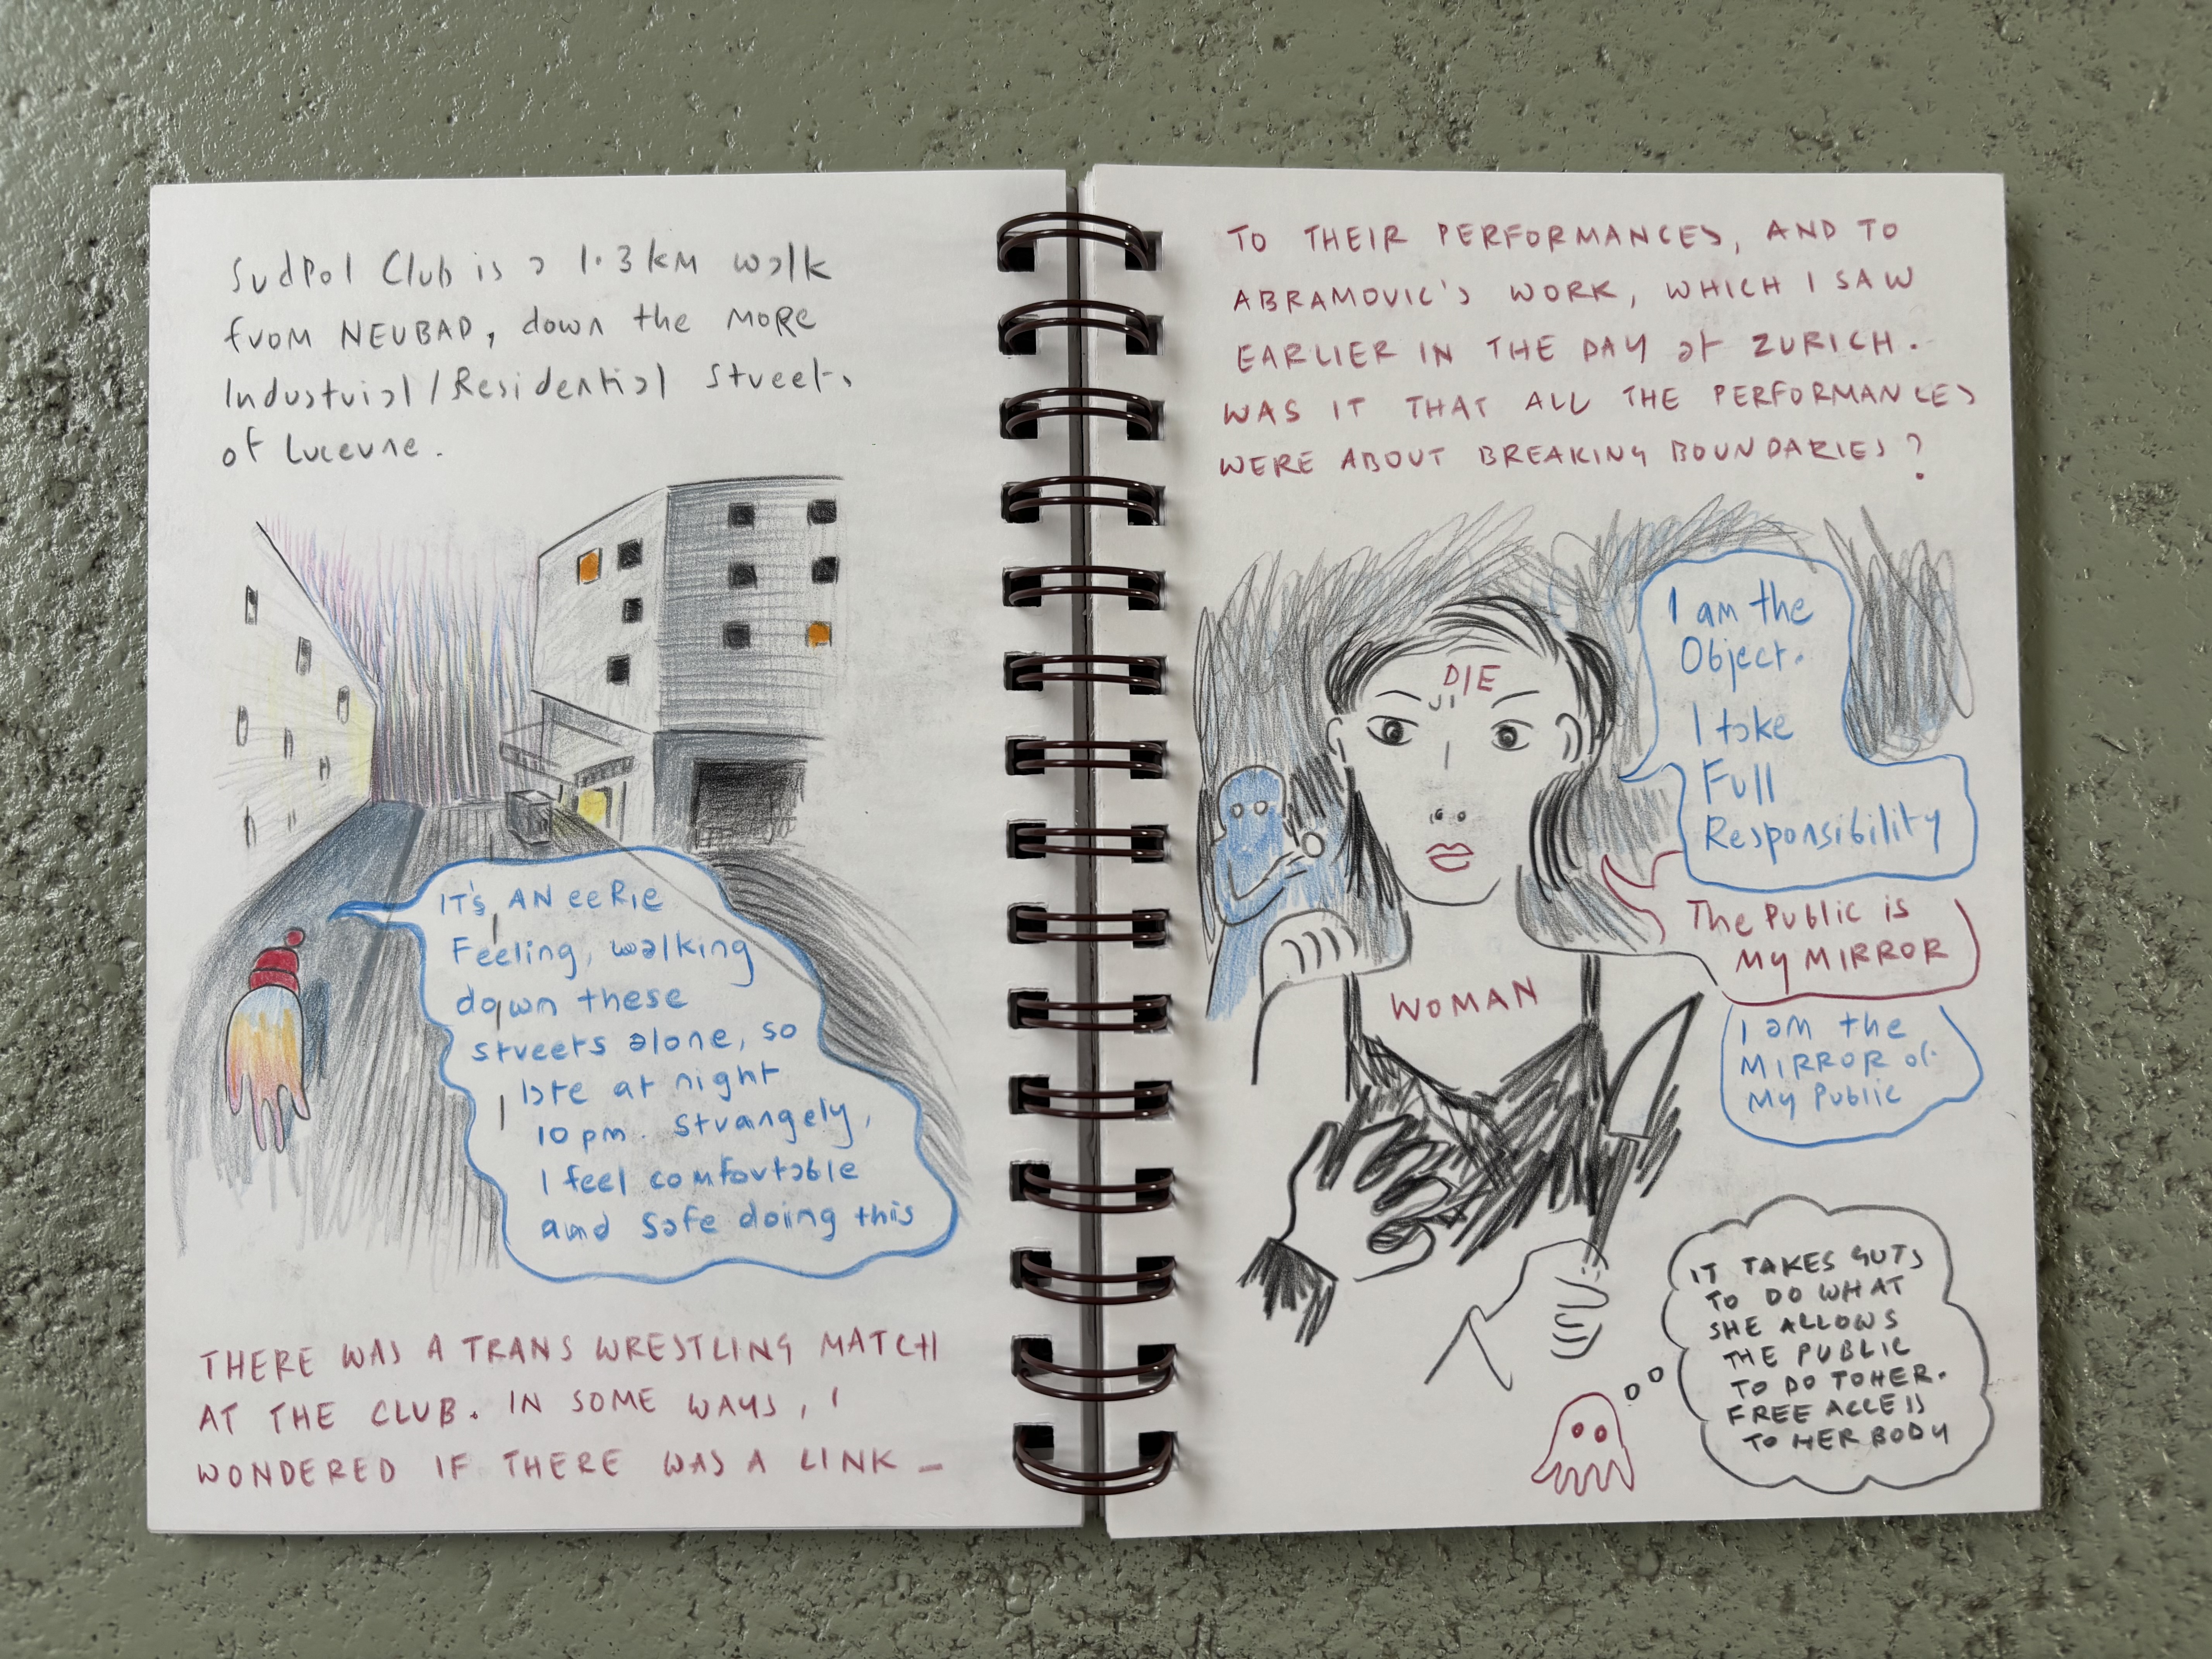 Sudpol Club is a 1.3km walk
from NEUBAD, down the more
Industrial/Residential streets
of Lucerne.
IT'S AN eeRIe
Feeling, walking
down these
streets alone, so
late at night
10pm. Strangely,
I feel comfortable
and safe doing this
THERE WAS A TRANS WRESTLING MATCH
AT THE CLUB. IN SOME WAYS, I
WONDERED IF THERE WAS A LINK –
TO THEIR PERFORMANCES, AND TO
ABRAMOVIC'S WORK, WHICH I SAW
EARLIER IN THE DAY at ZURICH.
WAS IT THAT ALL THE PERFORMANCES
WERE ABOUT BREAKING BOUNDARIES?
I am the
Object.
I take
Full
Responsibility
DIE
The Public is
My MIRROR
WOMAN
I am the
MIRROR of
My Public
IT TAKES GUTS
TO DO WHAT
SHE ALLOWS
THE PUBLIC
TO DO TO HER.
FREE ACCESS
TO HER BODY